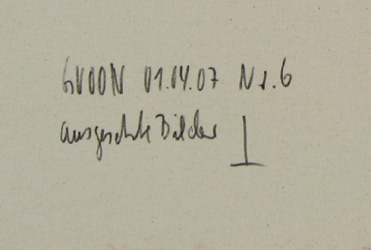 GVOON 01.04.07 Nr. 6
ausgesuchte Bilder I